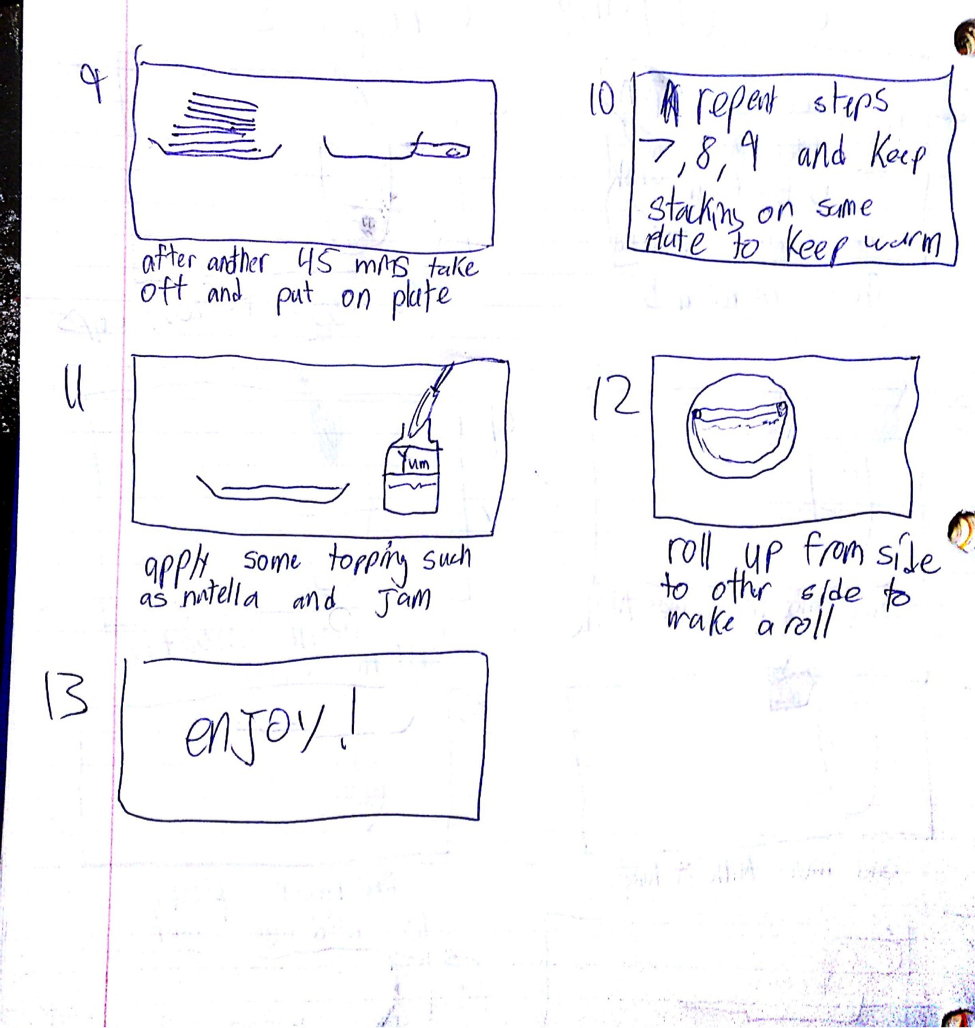 9
after anther 45 mns take
off and put on plate
10
repeat steps
7, 8, 9 and Keep
stacking on same
plate to keep warm
11
Yum
apply some topping such
as nutella and Jam
12
roll up from side
to othr side to
make a roll
13
enJoy!